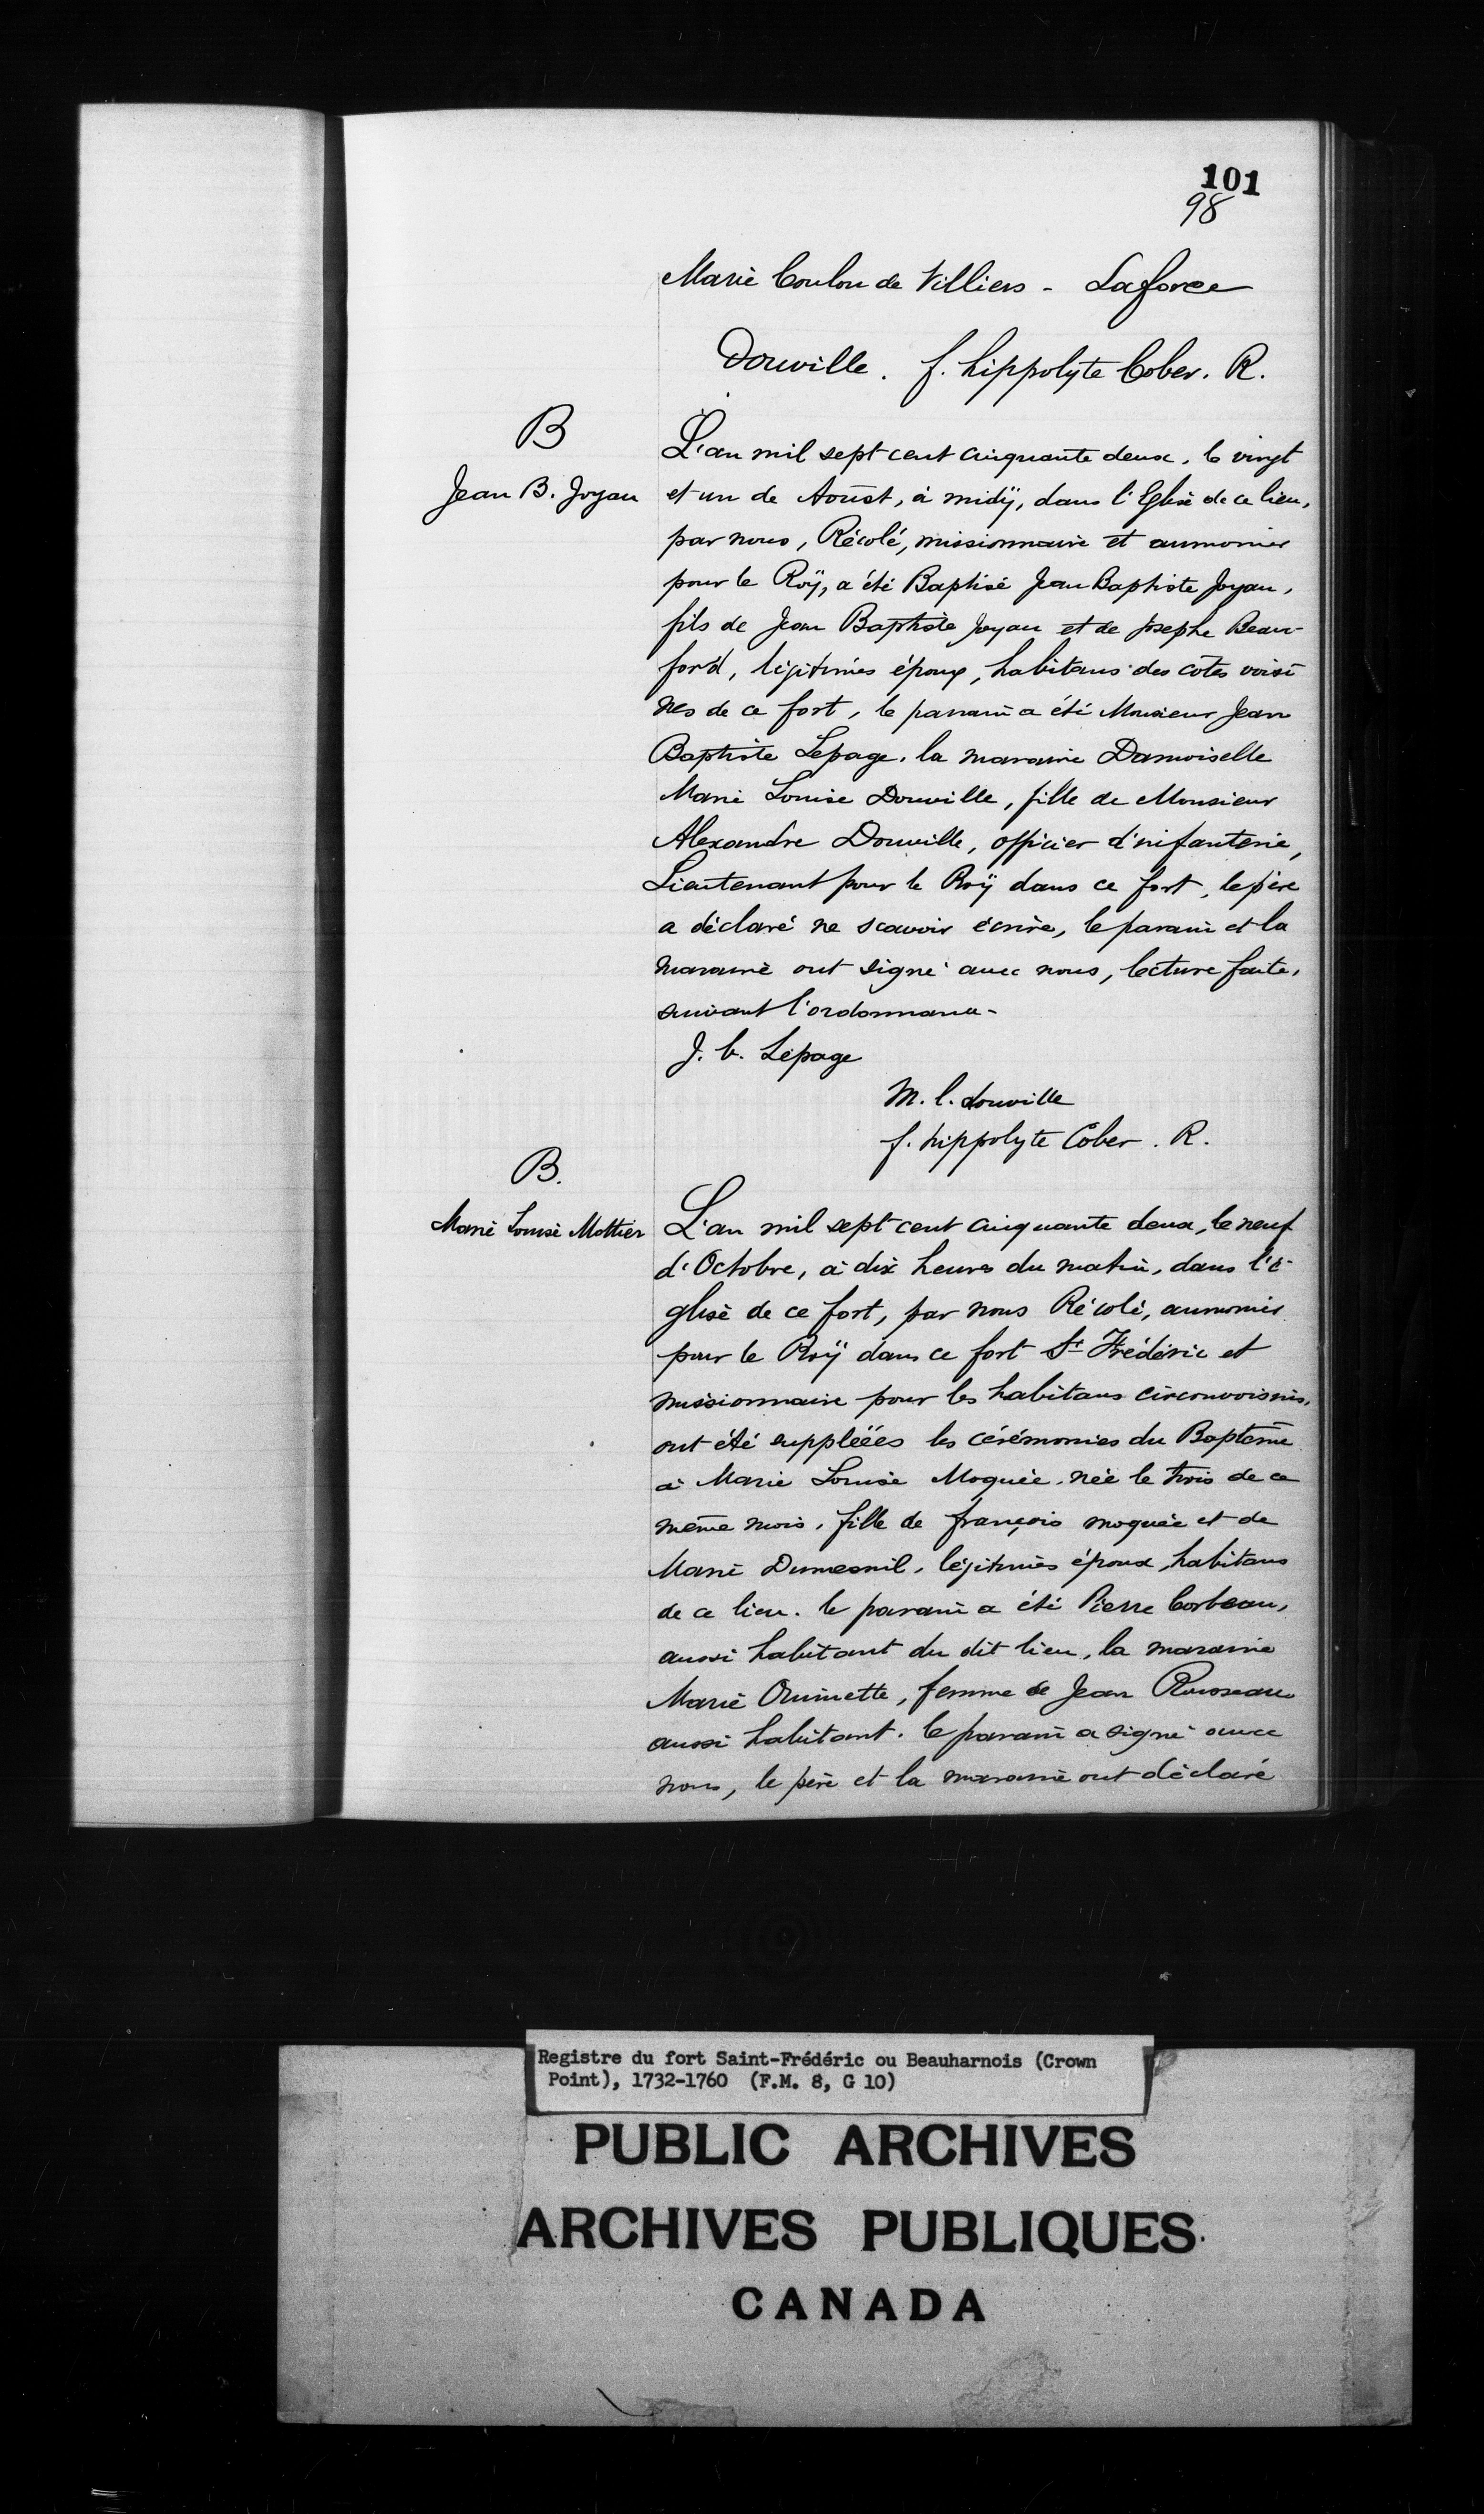 101
98
Marie Coulon de Villiers - Laforce
Douville. f. hippolyte Cober. R.
B
Jean B. Joyau
L'an mil sept cent cinquante deux, le vingt
et un de Aoust, à midÿ, dans l'Eglise de ce lieu,
par nous, Récolé, missionnaire et aumonier
pour le Roÿ, a été Baptisé Jean Baptiste Joyau,
fils de Jean Baptiste Joyau et de Josephe Beau-
ford, légitimes époux, habitans des cotes voisi
nes de ce fort, le parain a été Monsieur Jean
Baptiste Lepage, la maraine Damoiselle
Marie Louise Douville, fille de Monsieur
Alexandre Douville, officier d'infanterie,
Lieutenant pour le Roÿ dans ce fort, le père
a déclaré ne scavoir écrire, le parain et la
maraine ont signé avec nous, lecture faite,
suivant l'ordonnance-
J. b. Lepage
M. l. douville
f. hippolyte Cober. R.
B.
Marie Louise Mottier
L'an mil sept cent cinquante deux, le neuf
d'Octobre, à dix heures du matin, dans l'é-
glise de ce fort, par nous Récolé, aumonier
pour le Roÿ dans ce fort St Frédéric et
missionnaire pour les habitans circonvoisins,
ont été suppléées les cérémonies du Baptême
à Marie Louise Moquée, née le trois de ce
même mois, fille de françois moquée et de
Marie Dumesnil, légitimes époux, habitans
de ce lieu. le parain a été Pierre Corbeau,
aussi habitant du dit lieu, la maraine
Marie Ouimette, femme de Jean Rousseau
aussi habitant. le parain a signé avec
nous, le père et la maraine ont déclaré
Registre du fort Saint-Frédéric ou Beauharnois (Crown
Point), 1732-1760 (F.M. 8, G 10)
PUBLIC ARCHIVES
ARCHIVES PUBLIQUES
CANADA